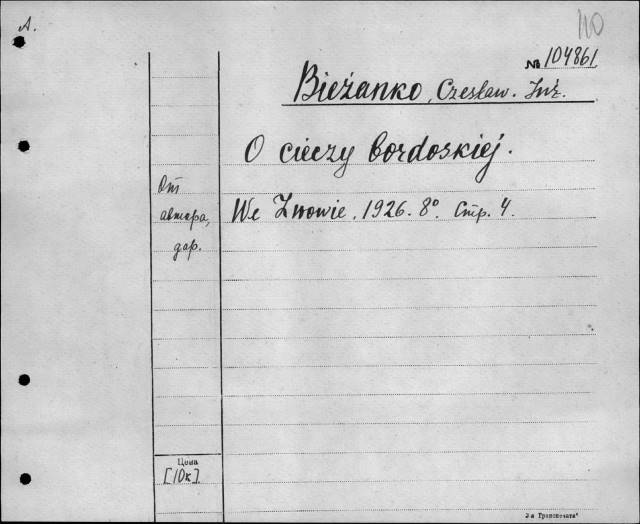 A.
110
№ 104861
Bieżanko, Czesław. Inż.
O cieczy bordoskiej.
От
автора,
дар.
We Lwowie, 1926. 8°. Стр. 4.
Цена
[10к]
2-я Гранпечать"